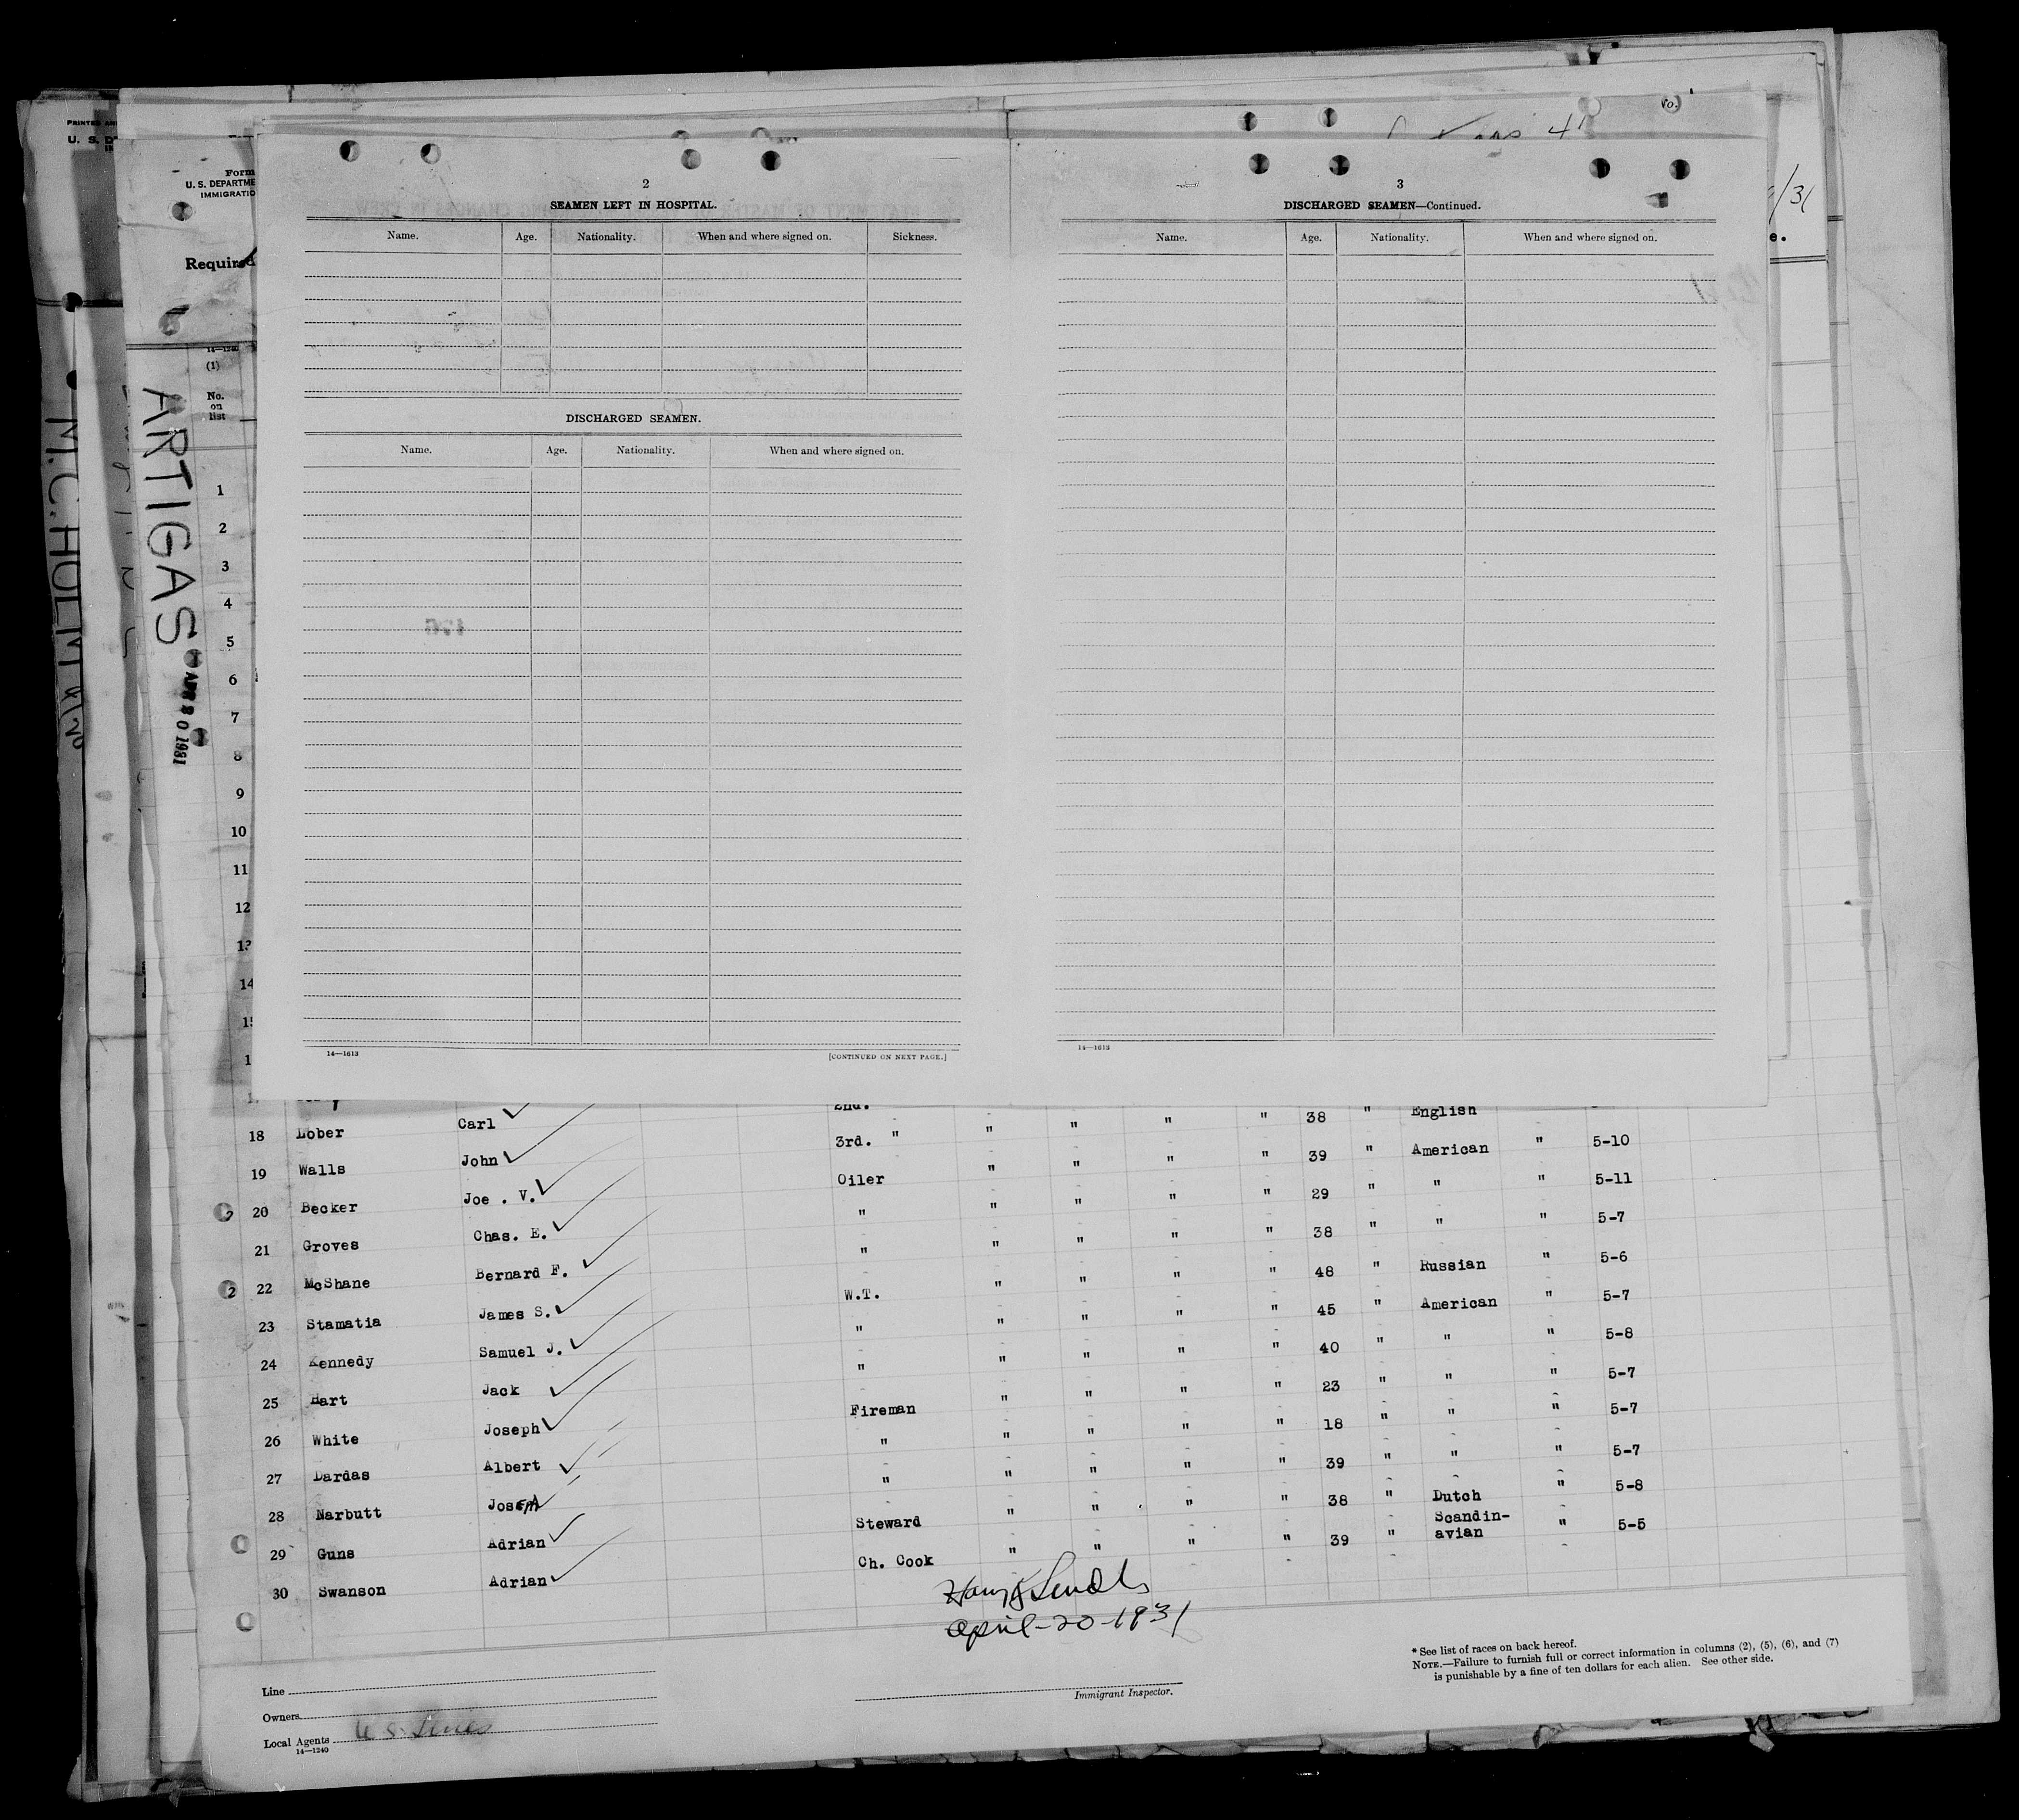 PRINTED
U. S. D
Form
U. S. DEPARTME
IMMIGRATIO
Require
14—1240
(1)
No.
on
list
M.C. HOLM
ARTIGAS
APR 20 1931
/31
e.
2
SEAMEN LEFT IN HOSPITAL.
Name. Age. Nationality. When and where signed on. Sickness.
DISCHARGED SEAMEN.
Name. Age. Nationality. When and where signed on.
14—1613 [CONTINUED ON NEXT PAGE.]
3
DISCHARGED SEAMEN—Continued.
Name. Age. Nationality. When and where signed on.
14—1613
1
2
3
4
5
6
7
8
9
10
11
12
13
14
15
1
2nd.
18 Lober Carl 3rd. " " " " " 38 " English
19 Walls John Oiler " " " " 39 " American " 5-10
2 20 Becker Joe . V. " " " " " 29 " " " 5-11
21 Groves Chas. E. " " " " " 38 " " " 5-7
2 22 McShane Bernard F. W.T. " " " " 48 " Russian " 5-6
23 Stamatia James S. " " " " " 45 " American " 5-7
24 Kennedy Samuel J. " " " " " 40 " " " 5-8
25 Hart Jack Fireman " " " " 23 " " " 5-7
26 White Joseph " " " " " 18 " " " 5-7
27 Dardas Albert " " " " " 39 " " " 5-7
28 Narbutt Joseph Steward " " " " 38 " Dutch " 5-8
29 Guns Adrian Ch. Cook " " " " 39 " Scandin-
avian " 5-5
30 Swanson Adrian
April-20-1931
Line
Owners
Local Agents U S. Lines
14—1240
Immigrant Inspector.
* See list of races on back hereof.
NOTE.—Failure to furnish full or correct information in columns (2), (5), (6), and (7)
is punishable by a fine of ten dollars for each alien. See other side.